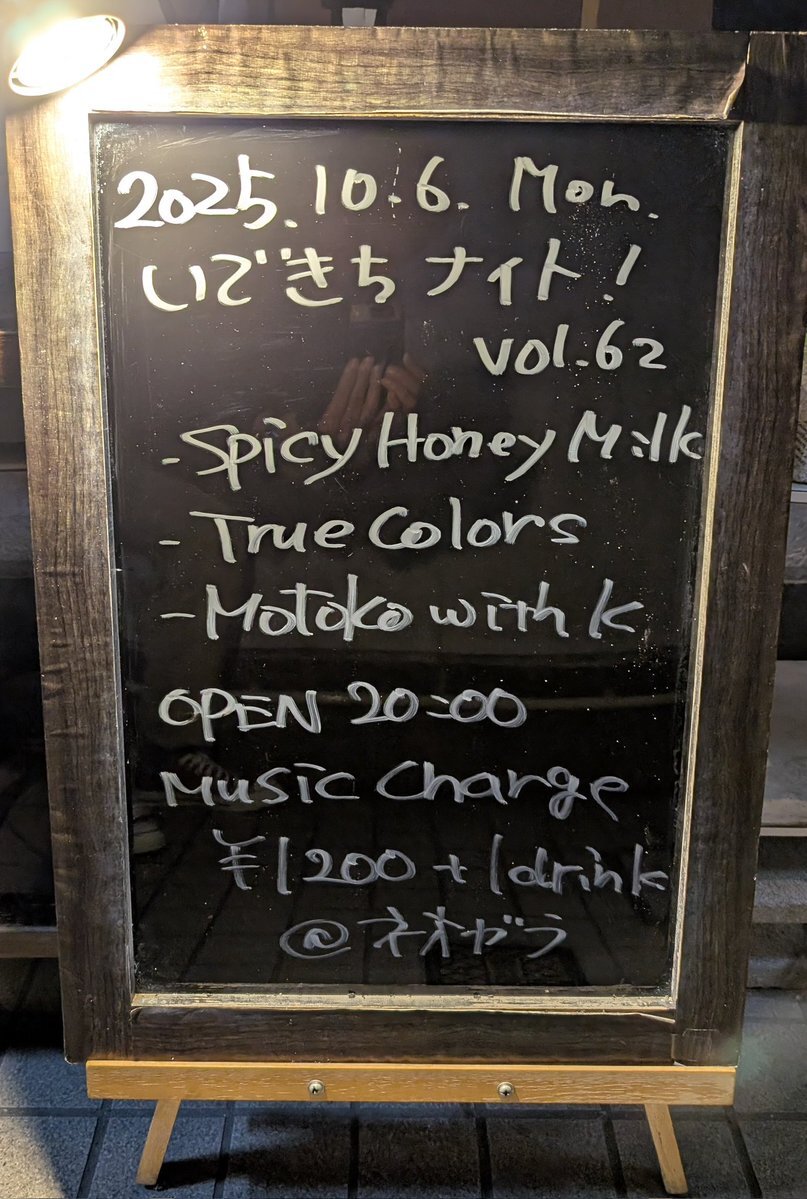 2025.10.6. Mon.
いできちナイト!
vol.62
-Spicy Honey Milk
-True Colors
-Motoko with K
OPEN 20:00
Music Charge
¥1200+1drink
@ネオガラ